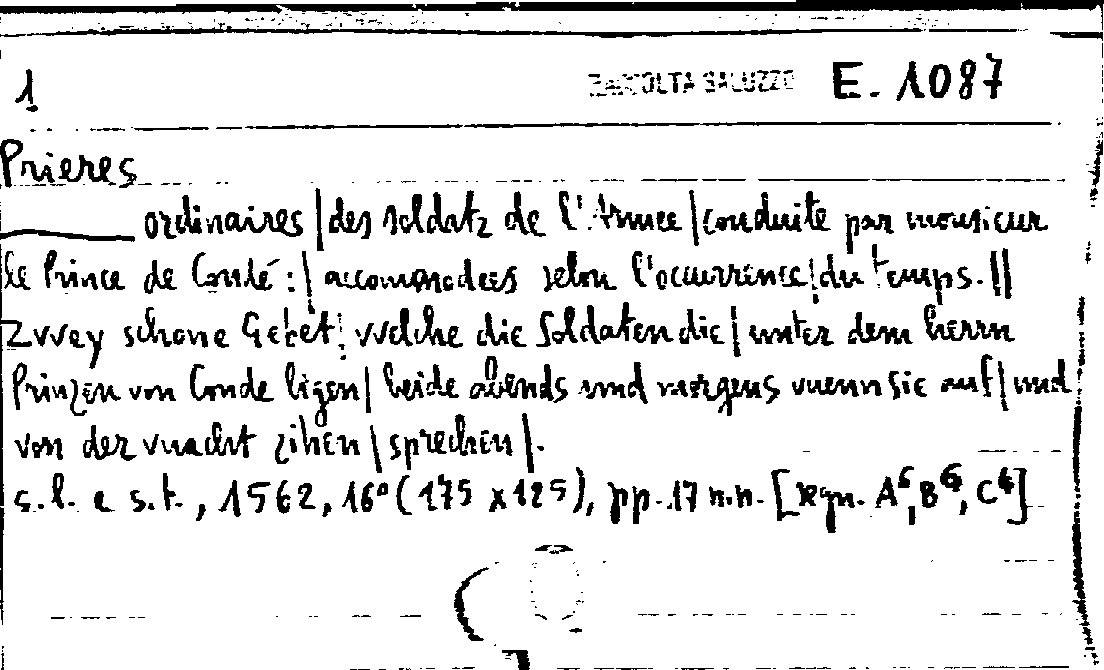 1 RACCOLTA SALUZZO E. 1087
Prieres
ordinaires | des soldatz de l'Armee | conduite par monsieur
le Prince de Condé : | accommodees selon l'occurrence | du temps. ||
Zvvey schone Gebet | vvelche die Soldaten die | unter dem herrn
Prinzen von Conde ligen | beide abends und morgens vuenn sie auf | und
von der vuacht zihen | sprechen |.
s.l. e s.t., 1562, 16° (175 x 125), pp. 17 n.n. [segn. A⁶, B⁶, C⁴]